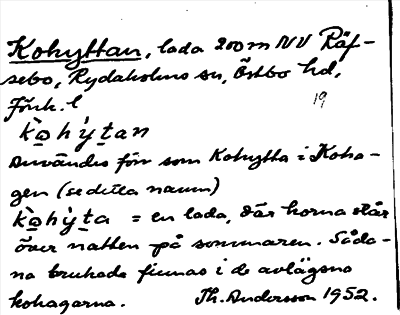 Kohyttan, lada 200 m NV Räf-
sebo, Rydaholms sn, Östbo hd,
Jönk. l
19
kọhy̍ṯan
Användes förr som Kohytta i Koha-
gen (se detta namn)
kọhy̍ṯa = en lada, där korna står
över natten på sommaren. Såda-
na brukade finnas i de avlägsna
kohagarna. Th. Andersson 1952.